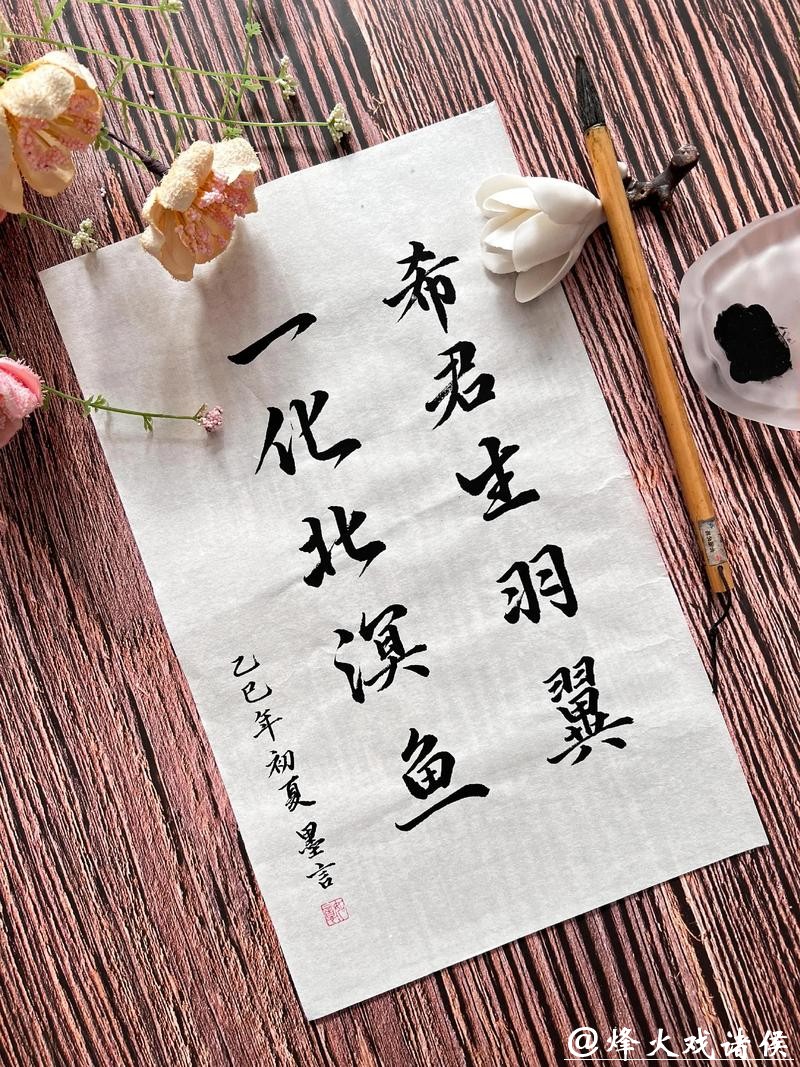 希君生羽翼
一化北溟鱼
乙巳年初夏墨言
@烽火戏诸侯